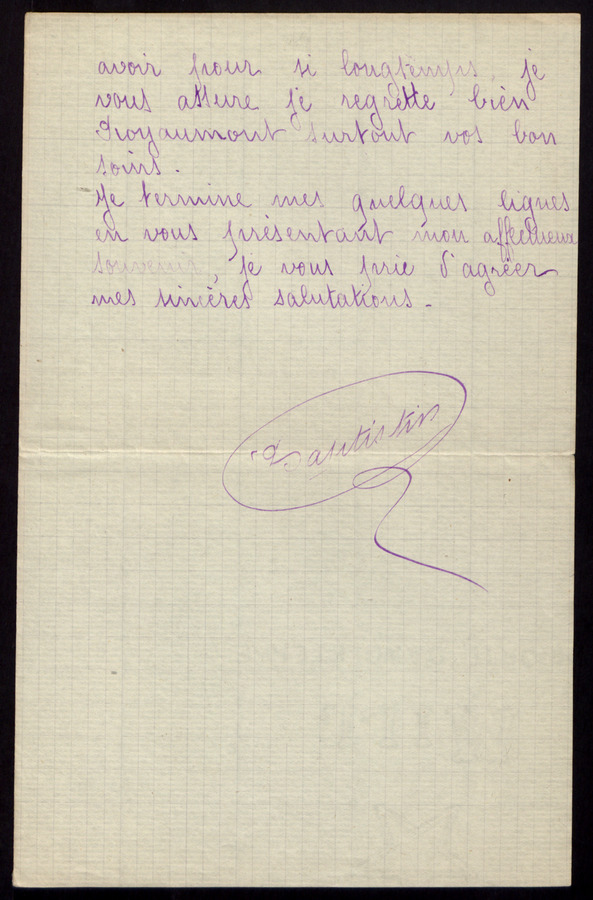 avoir pour si longtemps, je
vous assure je regrette bien
Royaumont surtout vos bon
soins.
Je termine mes quelques lignes
en vous présentant mon affectueux
souvenir, je vous prie d'agréer
mes sincères salutations.